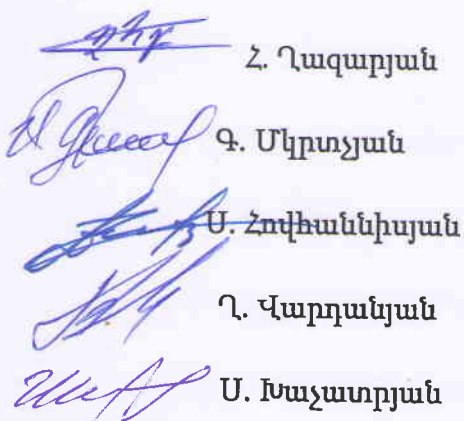 Հ. Ղազարյան
Գ. Մկրտչյան
Ս. Հովհաննիսյան
Ղ. Վարդանյան
Ս. Խաչատրյան